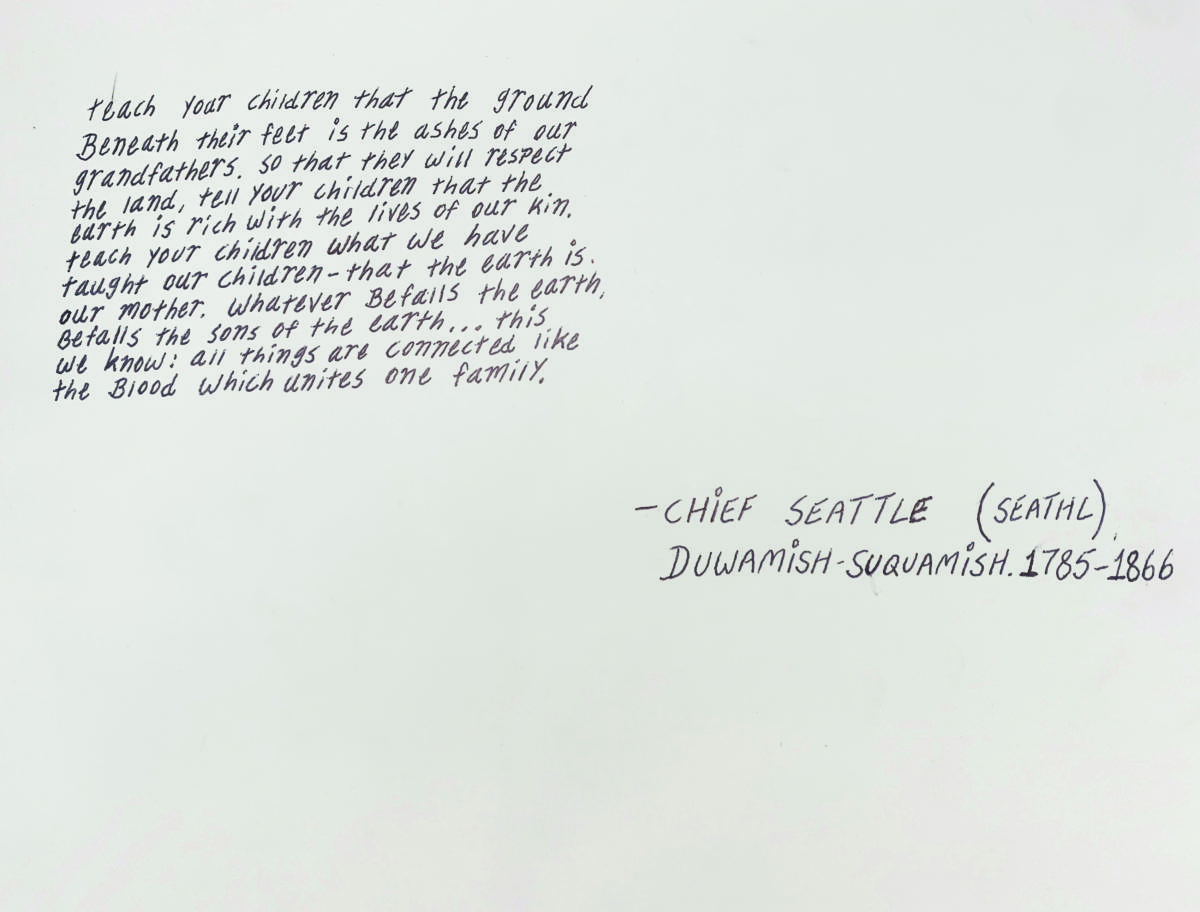 teach your children that the ground
Beneath their feet is the ashes of our
grandfathers. so that they will respect
the land, tell your children that the
earth is rich with the lives of our kin.
teach your children what we have
taught our children-that the earth is.
our mother. whatever Befalls the earth,
Befalls the sons of the earth... this
we know: all things are connected like
the Blood which unites one family.
-CHIEF SEATTLE (SEATHL)
DUWAMISH-SUQUAMISH. 1785-1866